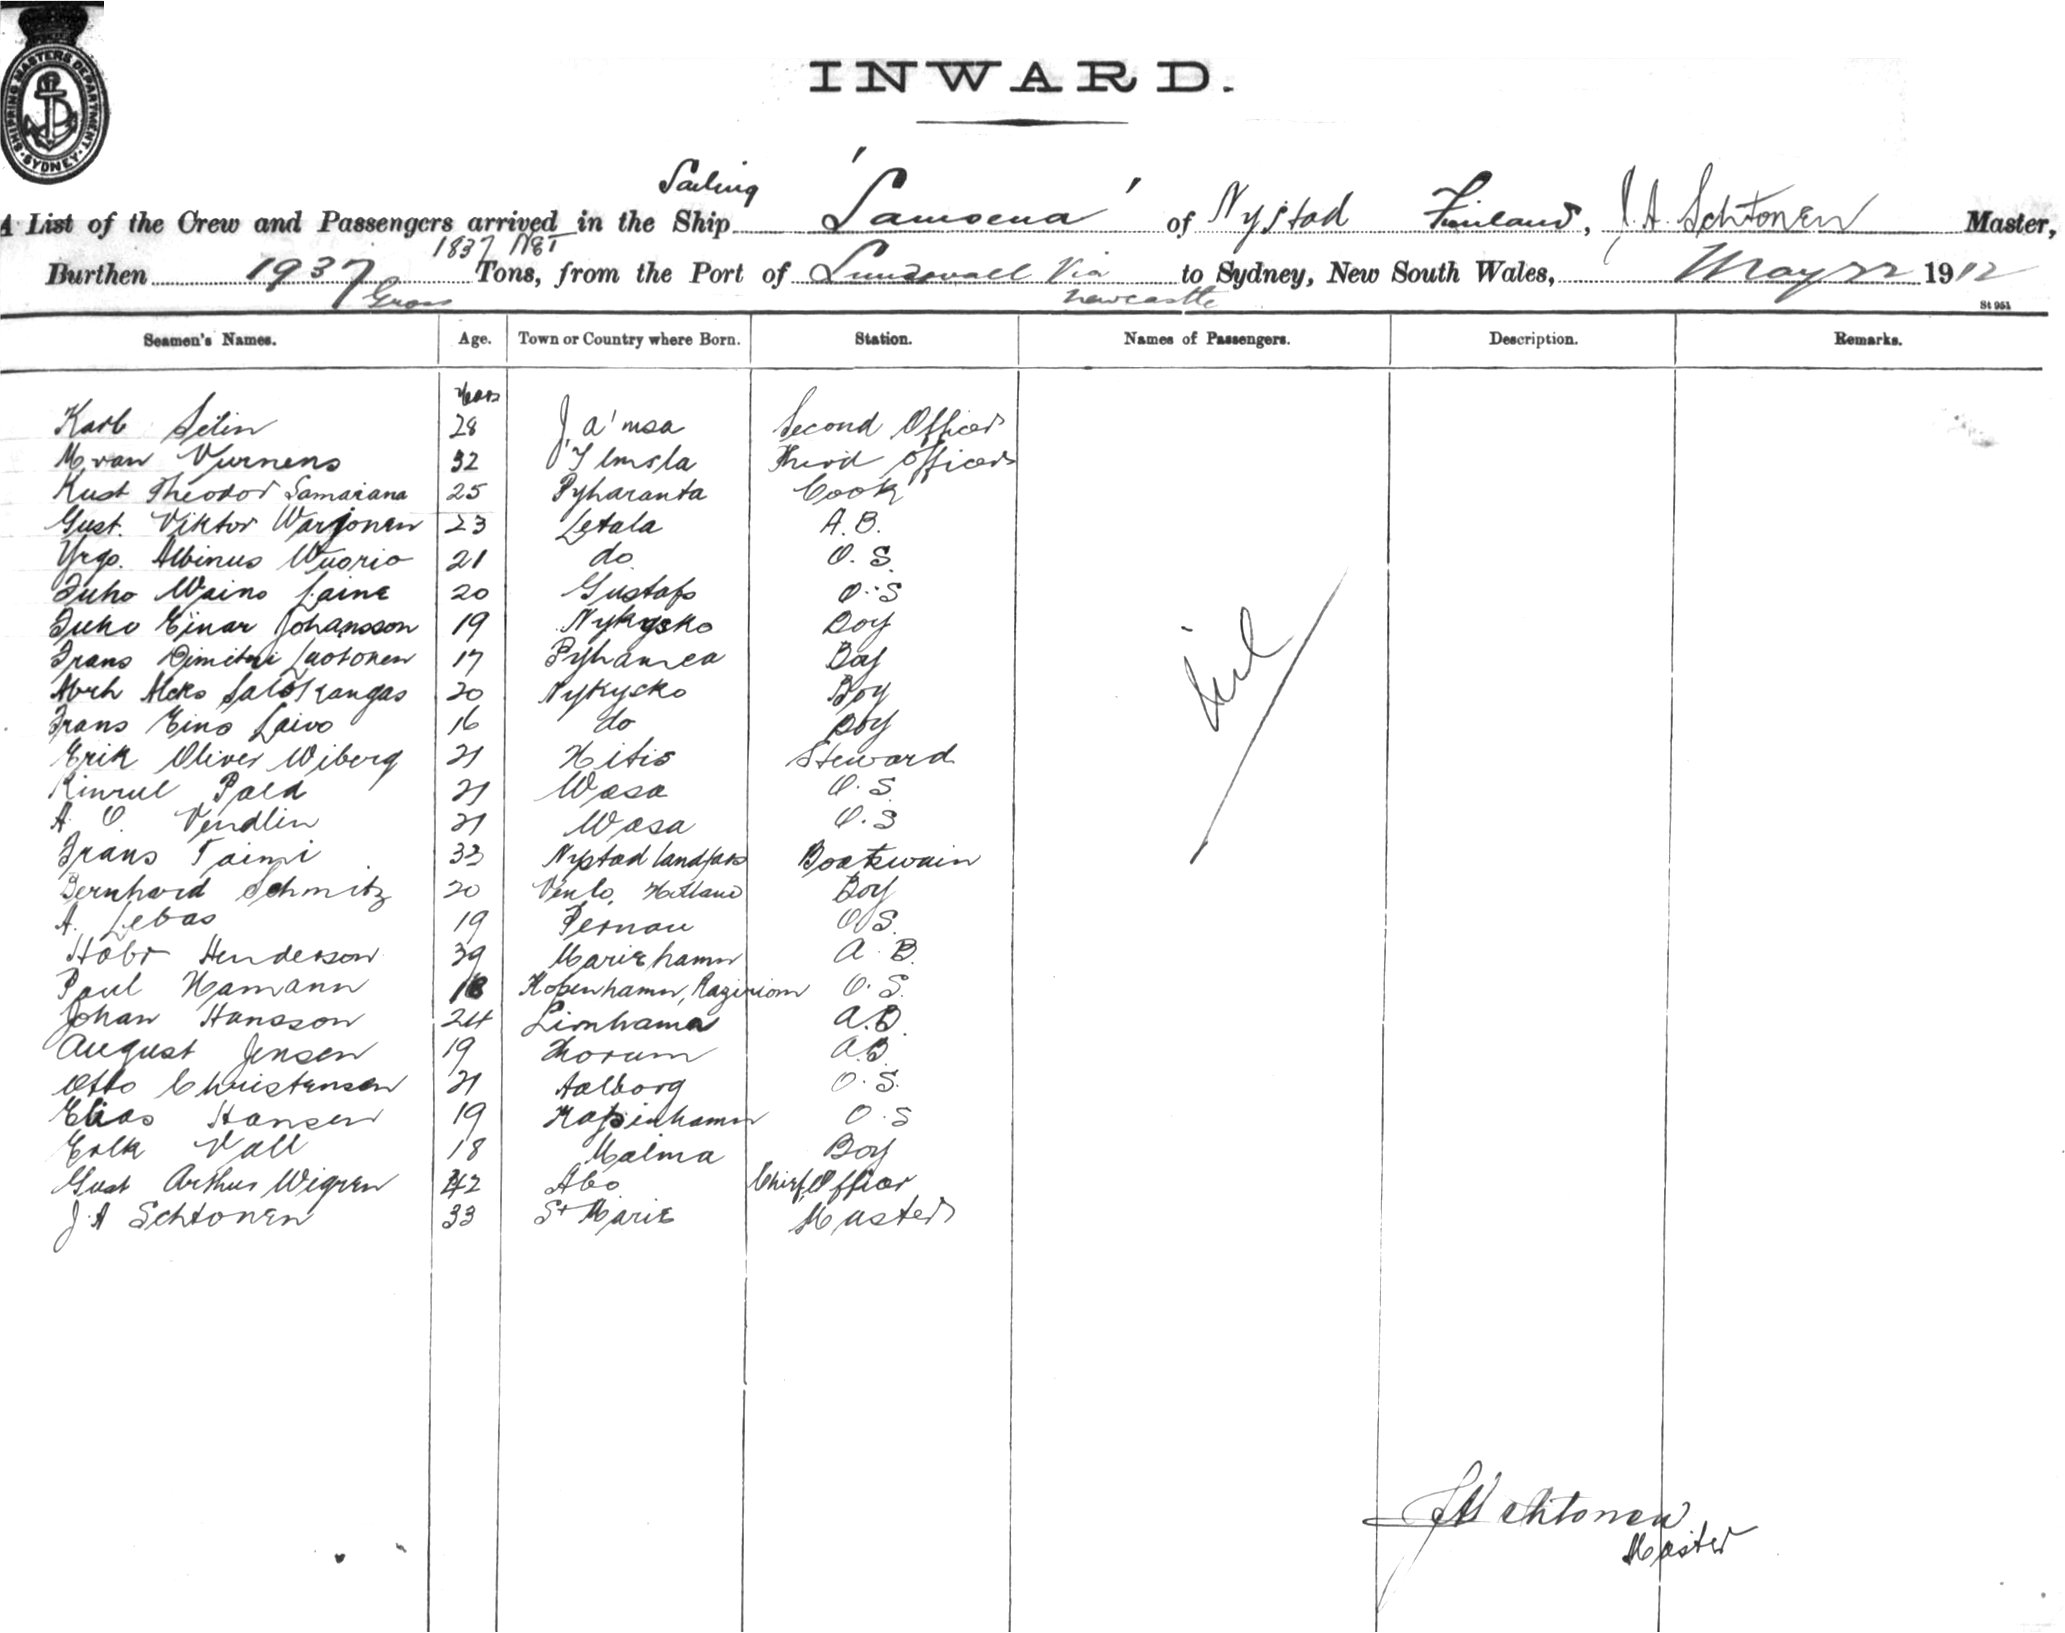 SHIPPING MASTERS DEPARTMENT
SYDNEY
INWARD.
Sailing
A List of the Crew and Passengers arrived in the Ship 'Samoena' of Nystad Finland, J. A. Schtonen Master,
1837 NET
Burthen 1937 Tons, from the Port of Sundsvall Via to Sydney, New South Wales, May 22 1912
Gross Newcastle
St 951
Seamen's Names. Age. Town or Country where Born. Station. Names of Passengers. Description. Remarks.
Karl Selin 28 Second Officer
32 Third Officer
Kust Theodor Samarana 25 Pyharanta Cook
Gust. Viktor Warjonen 23 Letala A. B.
Yrgo. Albinus Wuorio 21 do O. S.
Juho Waino Laine 20 Gustafs O. S
Juho Einar Johansson 19 Nykysko Boy
Frans Dimitri Luotonen 17 Boy
20 Nykycko Boy
Frans Eino Laivo 16 do Boy
Erik Oliver Wiberg 21 Hitis Steward
21 Wasa O. S.
A. O. Vendlin 21 Wasa O. S
Frans Taimi 33 Nystad Boatswain
Bernhard Schmitz 20 Venlo, Holland Boy
A. Lebas 19 Pernau O S.
Henderson 39 Mariehamn A. B.
Paul Hamann 18 Kopenhamn, O. S.
Johan Hansson 24 A.B.
August Jensen 19 Thorum A.B.
Otto Christensen 21 Aalborg O. S.
Elias Hansen 19 Kopenhamn O. S
Erik Vall 18 Malma Boy
Gust Arthur Wigren 42 Abo Chief Officer
J. A Schtonen 33 St Marie Master
nil
J A Schtonen
Master